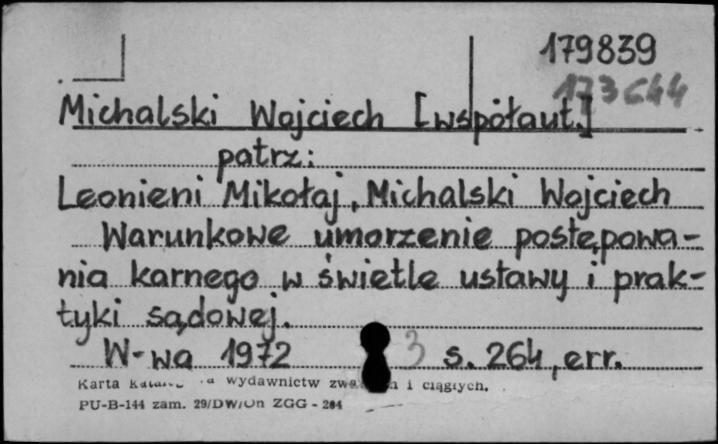 179839
173644
Michalski Wojciech [współaut.]
patrz:
Leonieni Mikołaj, Michalski Wojciech
Warunkowe umorzenie postępowa-
nia karnego w świetle ustawy i prak-
tyki sądowej.
W-wa 1972 3 s. 264, err.
Karta wydawnictw i ciągłych.
PU-B-144 zam. 29/DW/On ZGG - 284